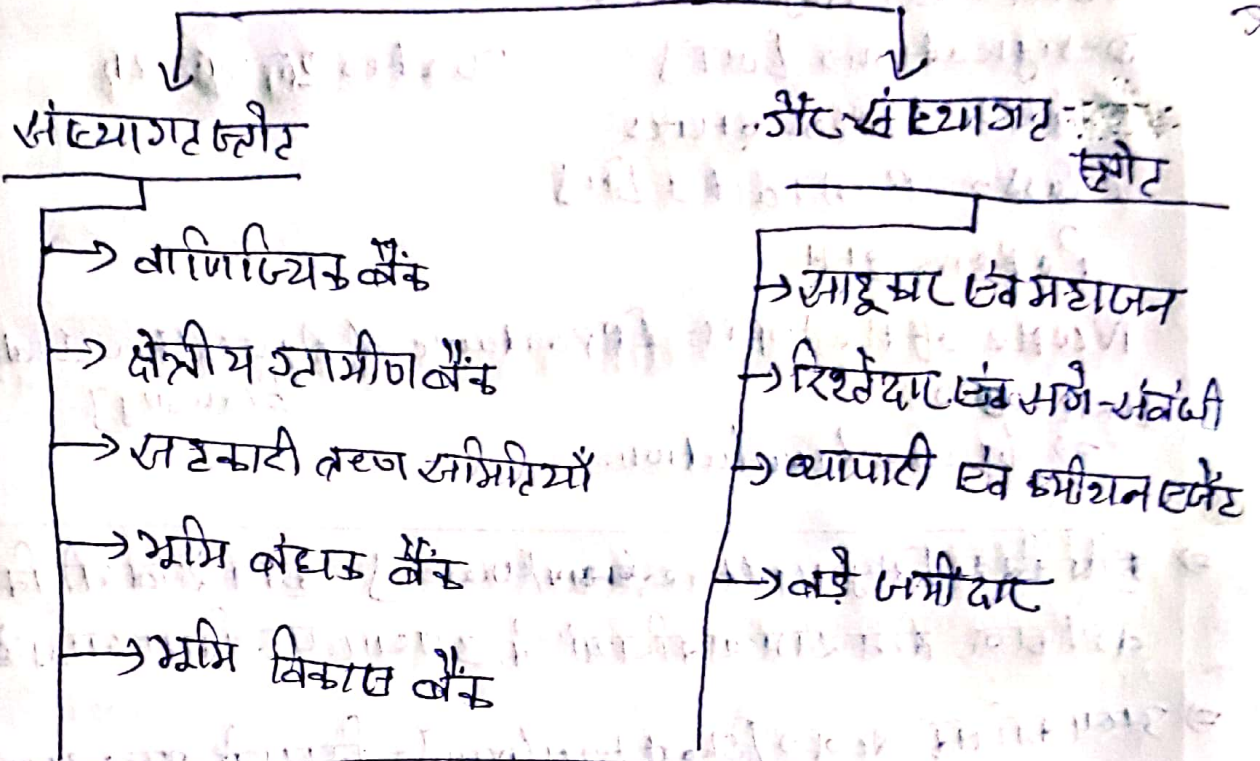 संस्थागत स्त्रोत
वाणिज्यिक बैंक
क्षेत्रीय ग्रामीण बैंक
सहकारी ऋण समितियाँ
भूमि बंधक बैंक
भूमि विकास बैंक
गैर-संस्थागत
स्त्रोत
साहूकार एवं महाजन
रिश्तेदार एवं सगे-संबंधी
व्यापारी एवं कमीशन एजेंट
बड़े जमींदार